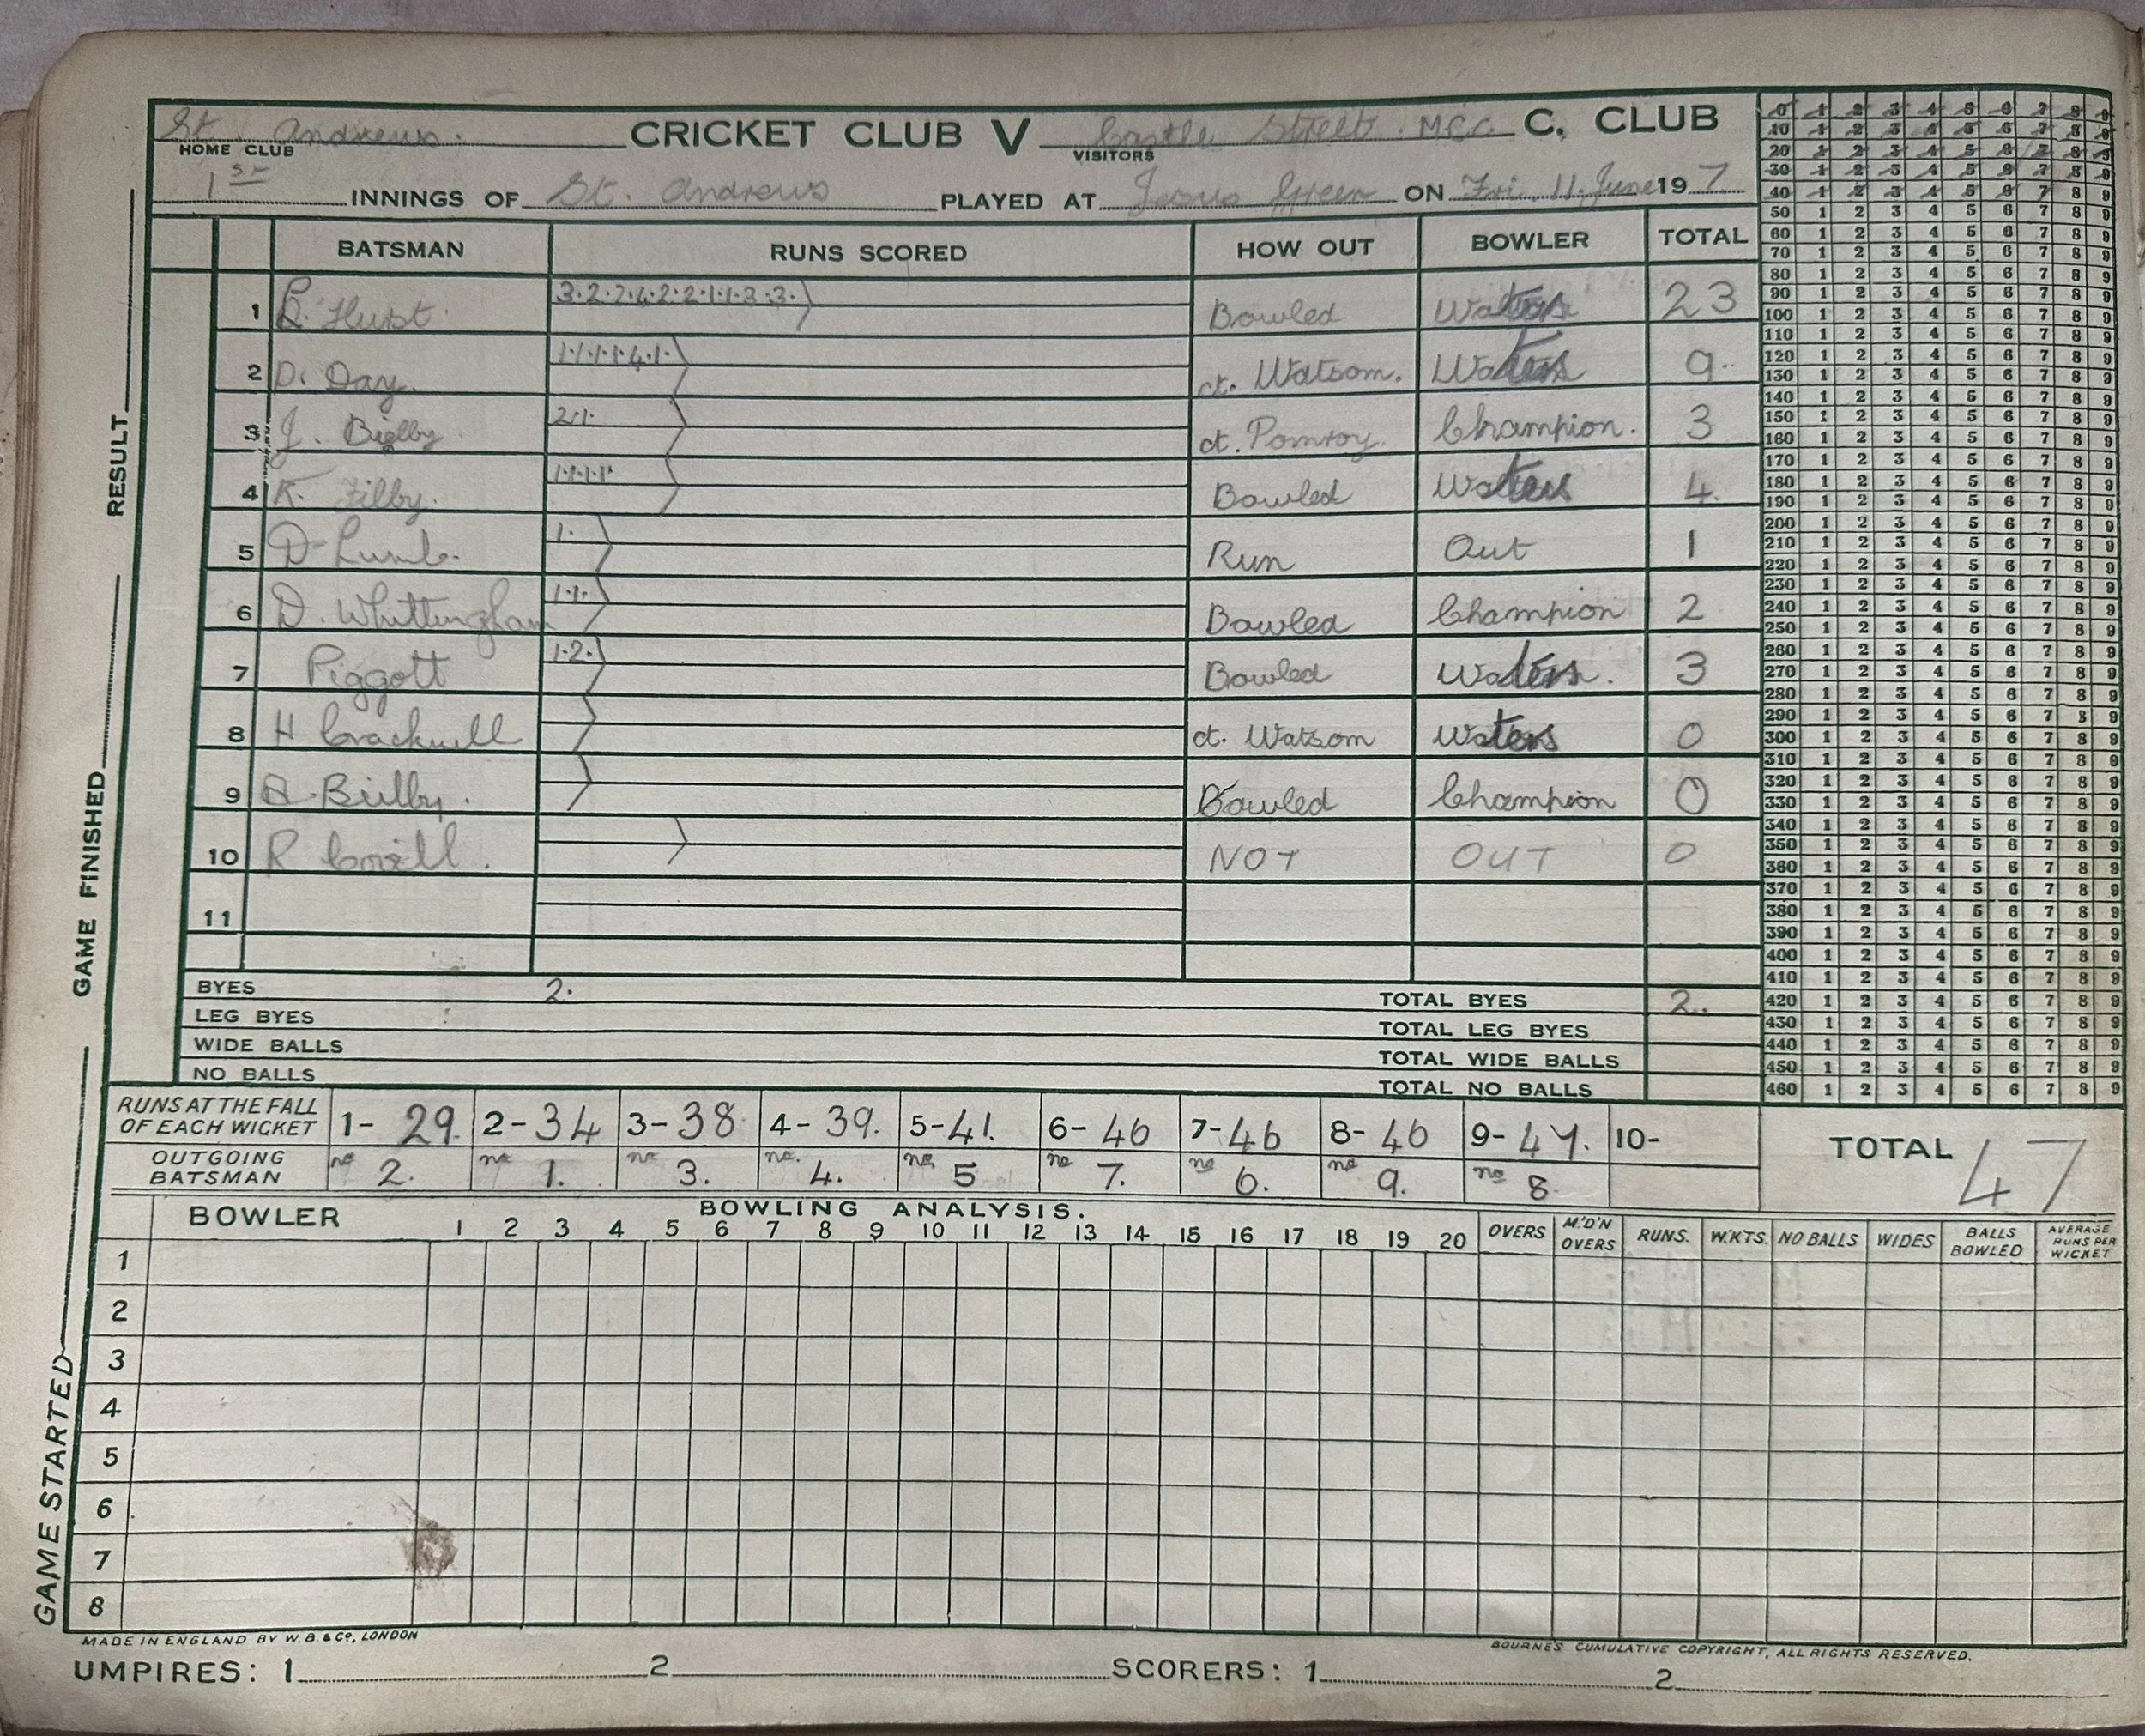 St. Andrews. CRICKET CLUB V Castle Street M.C.C. C. CLUB
HOME CLUB VISITORS
1st INNINGS OF St. Andrews PLAYED AT Jesus Green ON Fri. 11. June 19 7
BATSMAN RUNS SCORED HOW OUT BOWLER TOTAL
1 Hurst. 3.2.2.4.2.2.1.1.3.3. Bowled Waters 23
2 D. Day. 1.1.1.1.4.1. ct. Watson. Waters 9.
3 J. Bielby. 2.1. ct. Pomroy. Champion. 3
4 K. Filby. 1.1.1.1. Bowled Waters 4.
5 D. Lumb. 1. Run Out 1
6 D. Whittingham 1.1. Bowled Champion 2
7 Piggott 1.2. Bowled Waters. 3
8 H Cracknell ct. Watson Waters 0
9 Bielby. Bowled Champion 0
10 R NOT OUT 0
11
BYES 2. TOTAL BYES 2.
LEG BYES TOTAL LEG BYES
WIDE BALLS TOTAL WIDE BALLS
NO BALLS TOTAL NO BALLS
0 1 2 3 4 5 6 7 8 9
10 1 2 3 4 5 6 7 8 9
20 1 2 3 4 5 6 7 8 9
30 1 2 3 4 5 6 7 8 9
40 1 2 3 4 5 6 7 8 9
50 1 2 3 4 5 6 7 8 9
60 1 2 3 4 5 6 7 8 9
70 1 2 3 4 5 6 7 8 9
80 1 2 3 4 5 6 7 8 9
90 1 2 3 4 5 6 7 8 9
100 1 2 3 4 5 6 7 8 9
110 1 2 3 4 5 6 7 8 9
120 1 2 3 4 5 6 7 8 9
130 1 2 3 4 5 6 7 8 9
140 1 2 3 4 5 6 7 8 9
150 1 2 3 4 5 6 7 8 9
160 1 2 3 4 5 6 7 8 9
170 1 2 3 4 5 6 7 8 9
180 1 2 3 4 5 6 7 8 9
190 1 2 3 4 5 6 7 8 9
200 1 2 3 4 5 6 7 8 9
210 1 2 3 4 5 6 7 8 9
220 1 2 3 4 5 6 7 8 9
230 1 2 3 4 5 6 7 8 9
240 1 2 3 4 5 6 7 8 9
250 1 2 3 4 5 6 7 8 9
260 1 2 3 4 5 6 7 8 9
270 1 2 3 4 5 6 7 8 9
280 1 2 3 4 5 6 7 8 9
290 1 2 3 4 5 6 7 8 9
300 1 2 3 4 5 6 7 8 9
310 1 2 3 4 5 6 7 8 9
320 1 2 3 4 5 6 7 8 9
330 1 2 3 4 5 6 7 8 9
340 1 2 3 4 5 6 7 8 9
350 1 2 3 4 5 6 7 8 9
360 1 2 3 4 5 6 7 8 9
370 1 2 3 4 5 6 7 8 9
380 1 2 3 4 5 6 7 8 9
390 1 2 3 4 5 6 7 8 9
400 1 2 3 4 5 6 7 8 9
410 1 2 3 4 5 6 7 8 9
420 1 2 3 4 5 6 7 8 9
430 1 2 3 4 5 6 7 8 9
440 1 2 3 4 5 6 7 8 9
450 1 2 3 4 5 6 7 8 9
460 1 2 3 4 5 6 7 8 9
RUNS AT THE FALL OF EACH WICKET 1- 29. 2- 34 3- 38 4- 39. 5- 41. 6- 46 7- 46 8- 46 9- 47. 10-
OUTGOING BATSMAN no 2. no 1. no 3. no. 4. no. 5 no 7. no 6. no 9. no 8.
TOTAL 47
BOWLING ANALYSIS.
BOWLER 1 2 3 4 5 6 7 8 9 10 11 12 13 14 15 16 17 18 19 20 OVERS M'D'N OVERS RUNS. W.KTS. NO BALLS WIDES BALLS BOWLED AVERAGE RUNS PER WICKET
1
2
3
4
5
6
7
8
MADE IN ENGLAND BY W.B. & Co., LONDON
BOURNE'S CUMULATIVE COPYRIGHT, ALL RIGHTS RESERVED.
UMPIRES: 1 2 SCORERS: 1 2
GAME STARTED GAME FINISHED RESULT